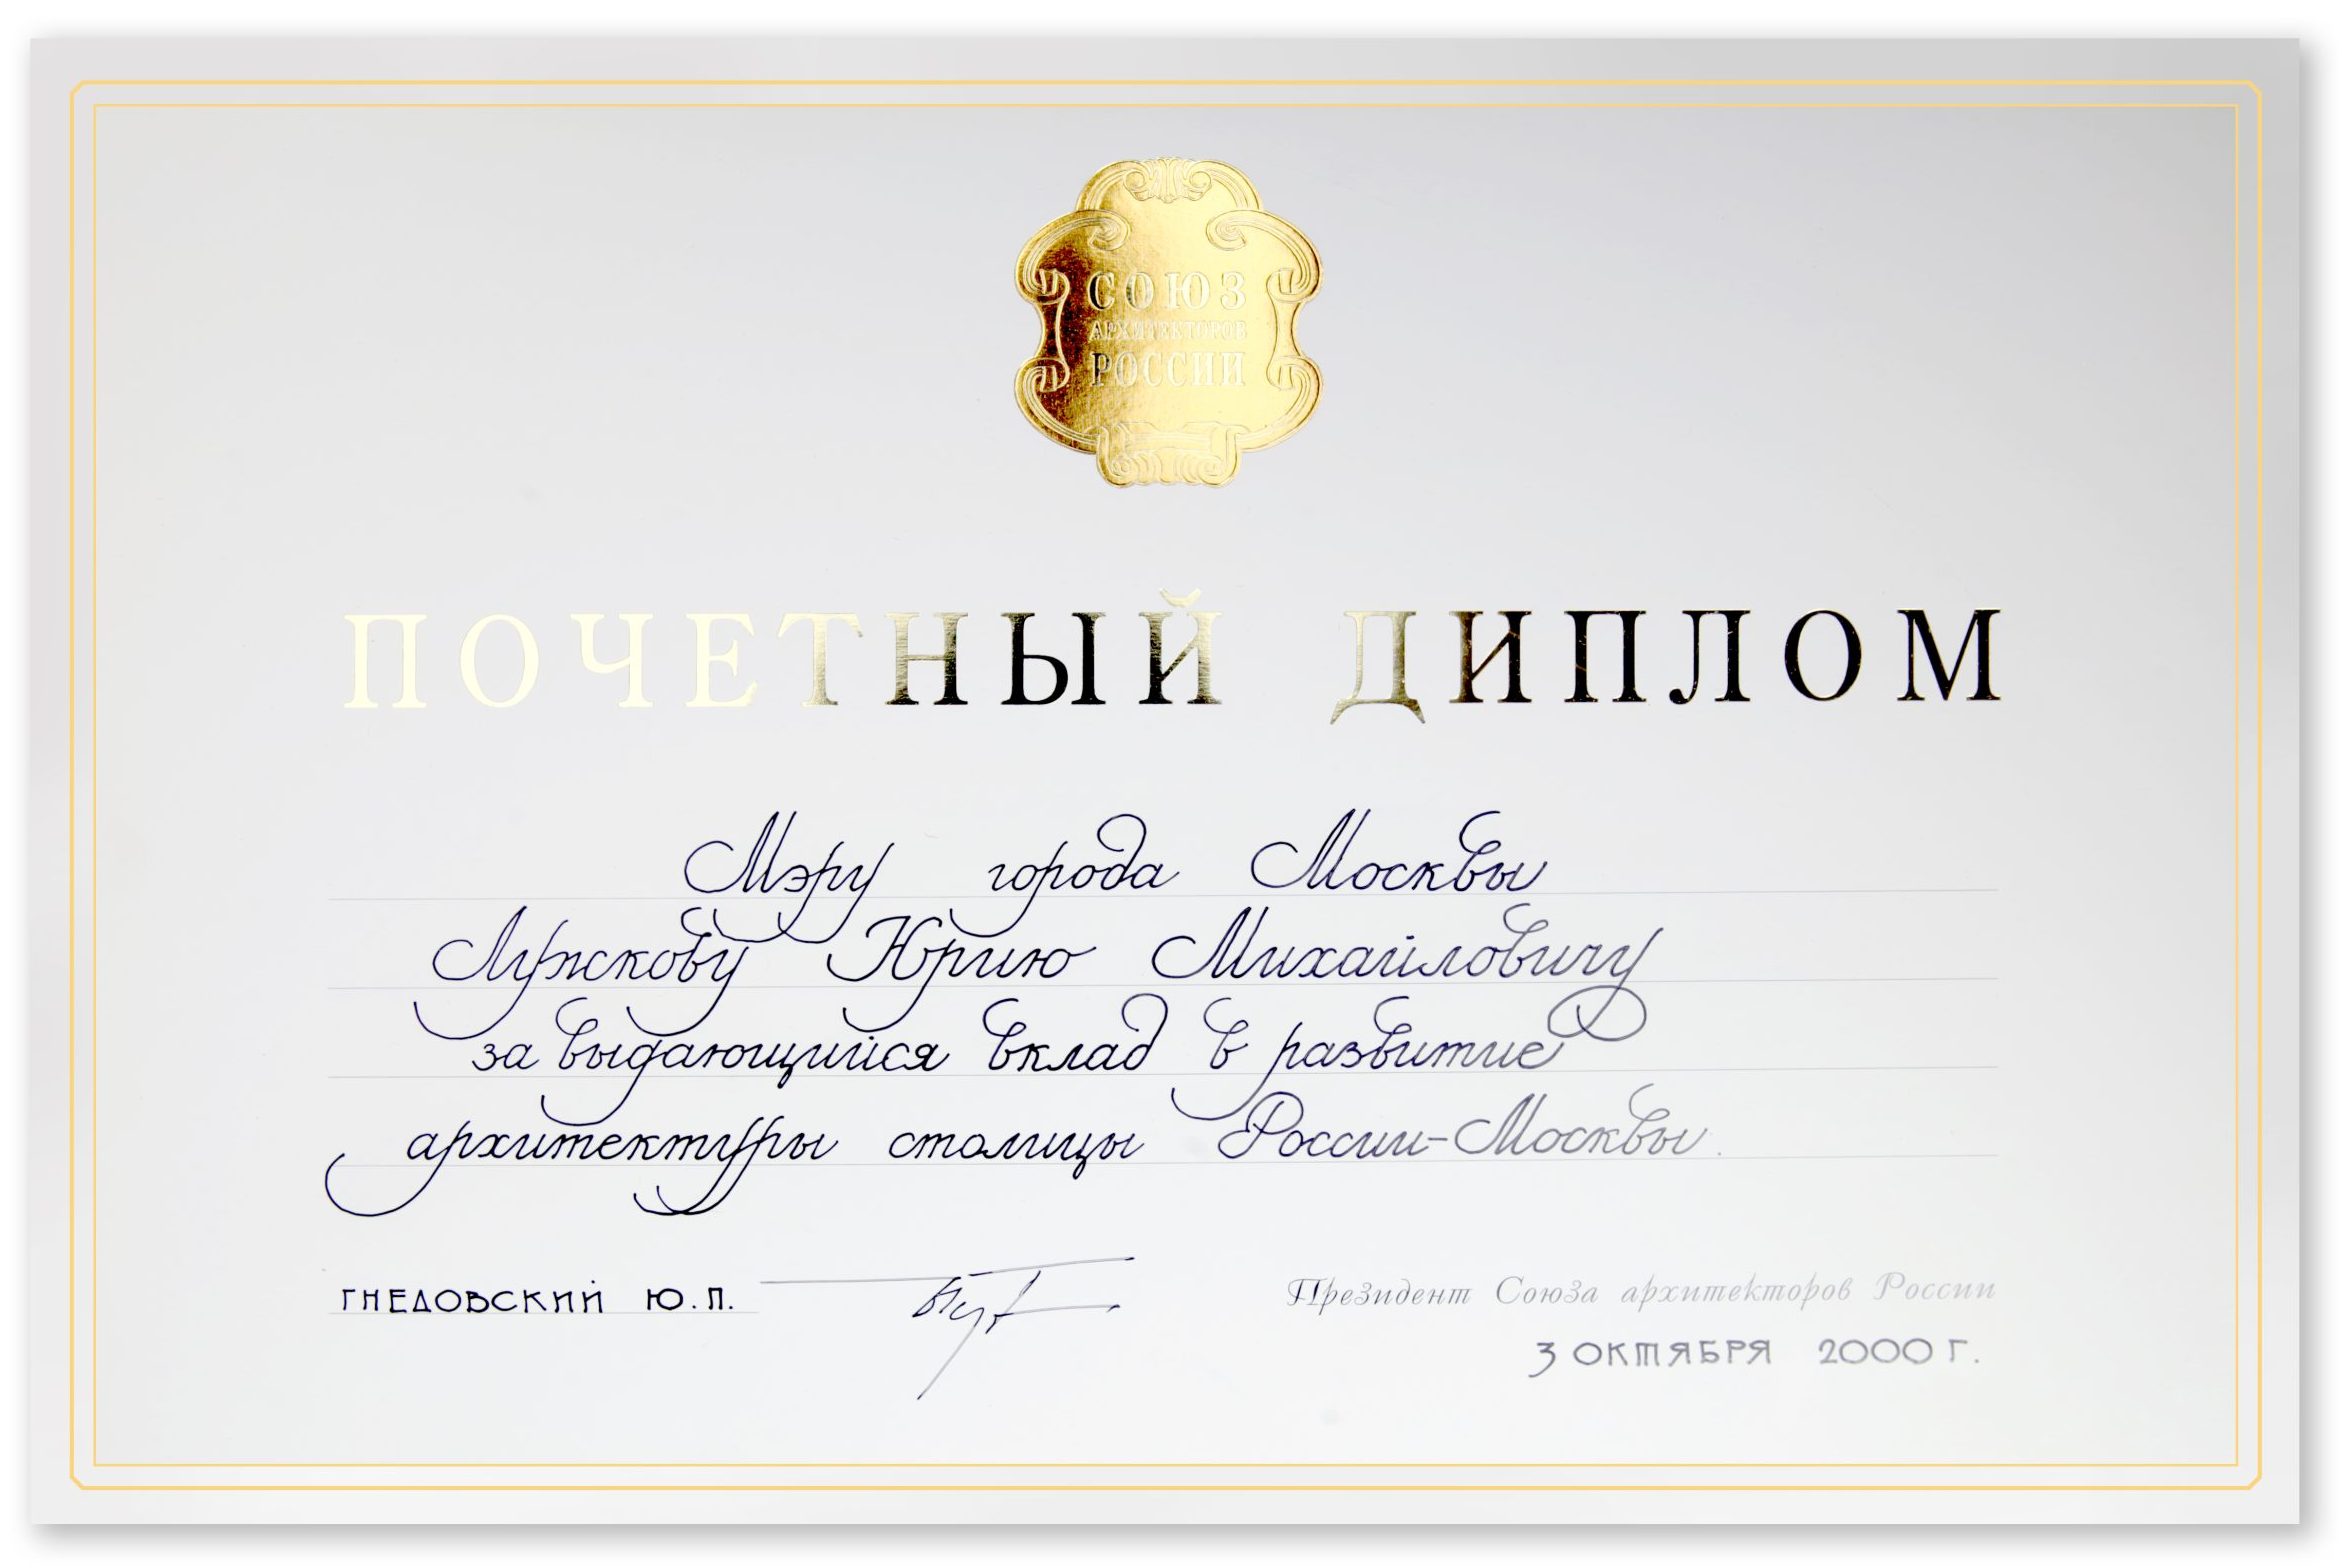 СОЮЗ
АРХИТЕКТОРОВ
РОССИИ
ПОЧЕТНЫЙ ДИПЛОМ
Мэру города Москвы
Лужкову Юрию Михайловичу
за выдающийся вклад в развитие
архитектуры столицы России-Москвы.
ГНЕДОВСКИЙ Ю.П. Президент Союза архитекторов России
3 ОКТЯБРЯ 2000 Г.